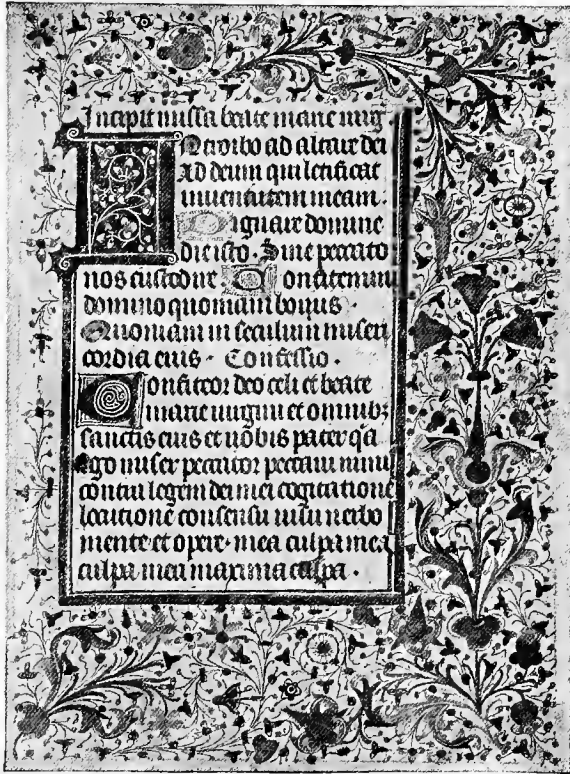 Incipit missa beate marie uirg
Introibo ad altare dei
Ad deum qui letificat
iuuentutem meam.
Dignare domine
die isto. Sine peccato
nos custodire Confitemini
domino quoniam bonus.
Quoniam in seculum miseri
cordia eius. Confessio.
Confiteor deo celi et beate
marie uirgini et omnibz
sanctis eius et uobis pater qa
Ego miser peccator peccaui nimis
contra legem dei mei cogitatione
locutione consensu uisu uerbo
mente et opere. mea culpa mea
culpa mea maxima culpa.